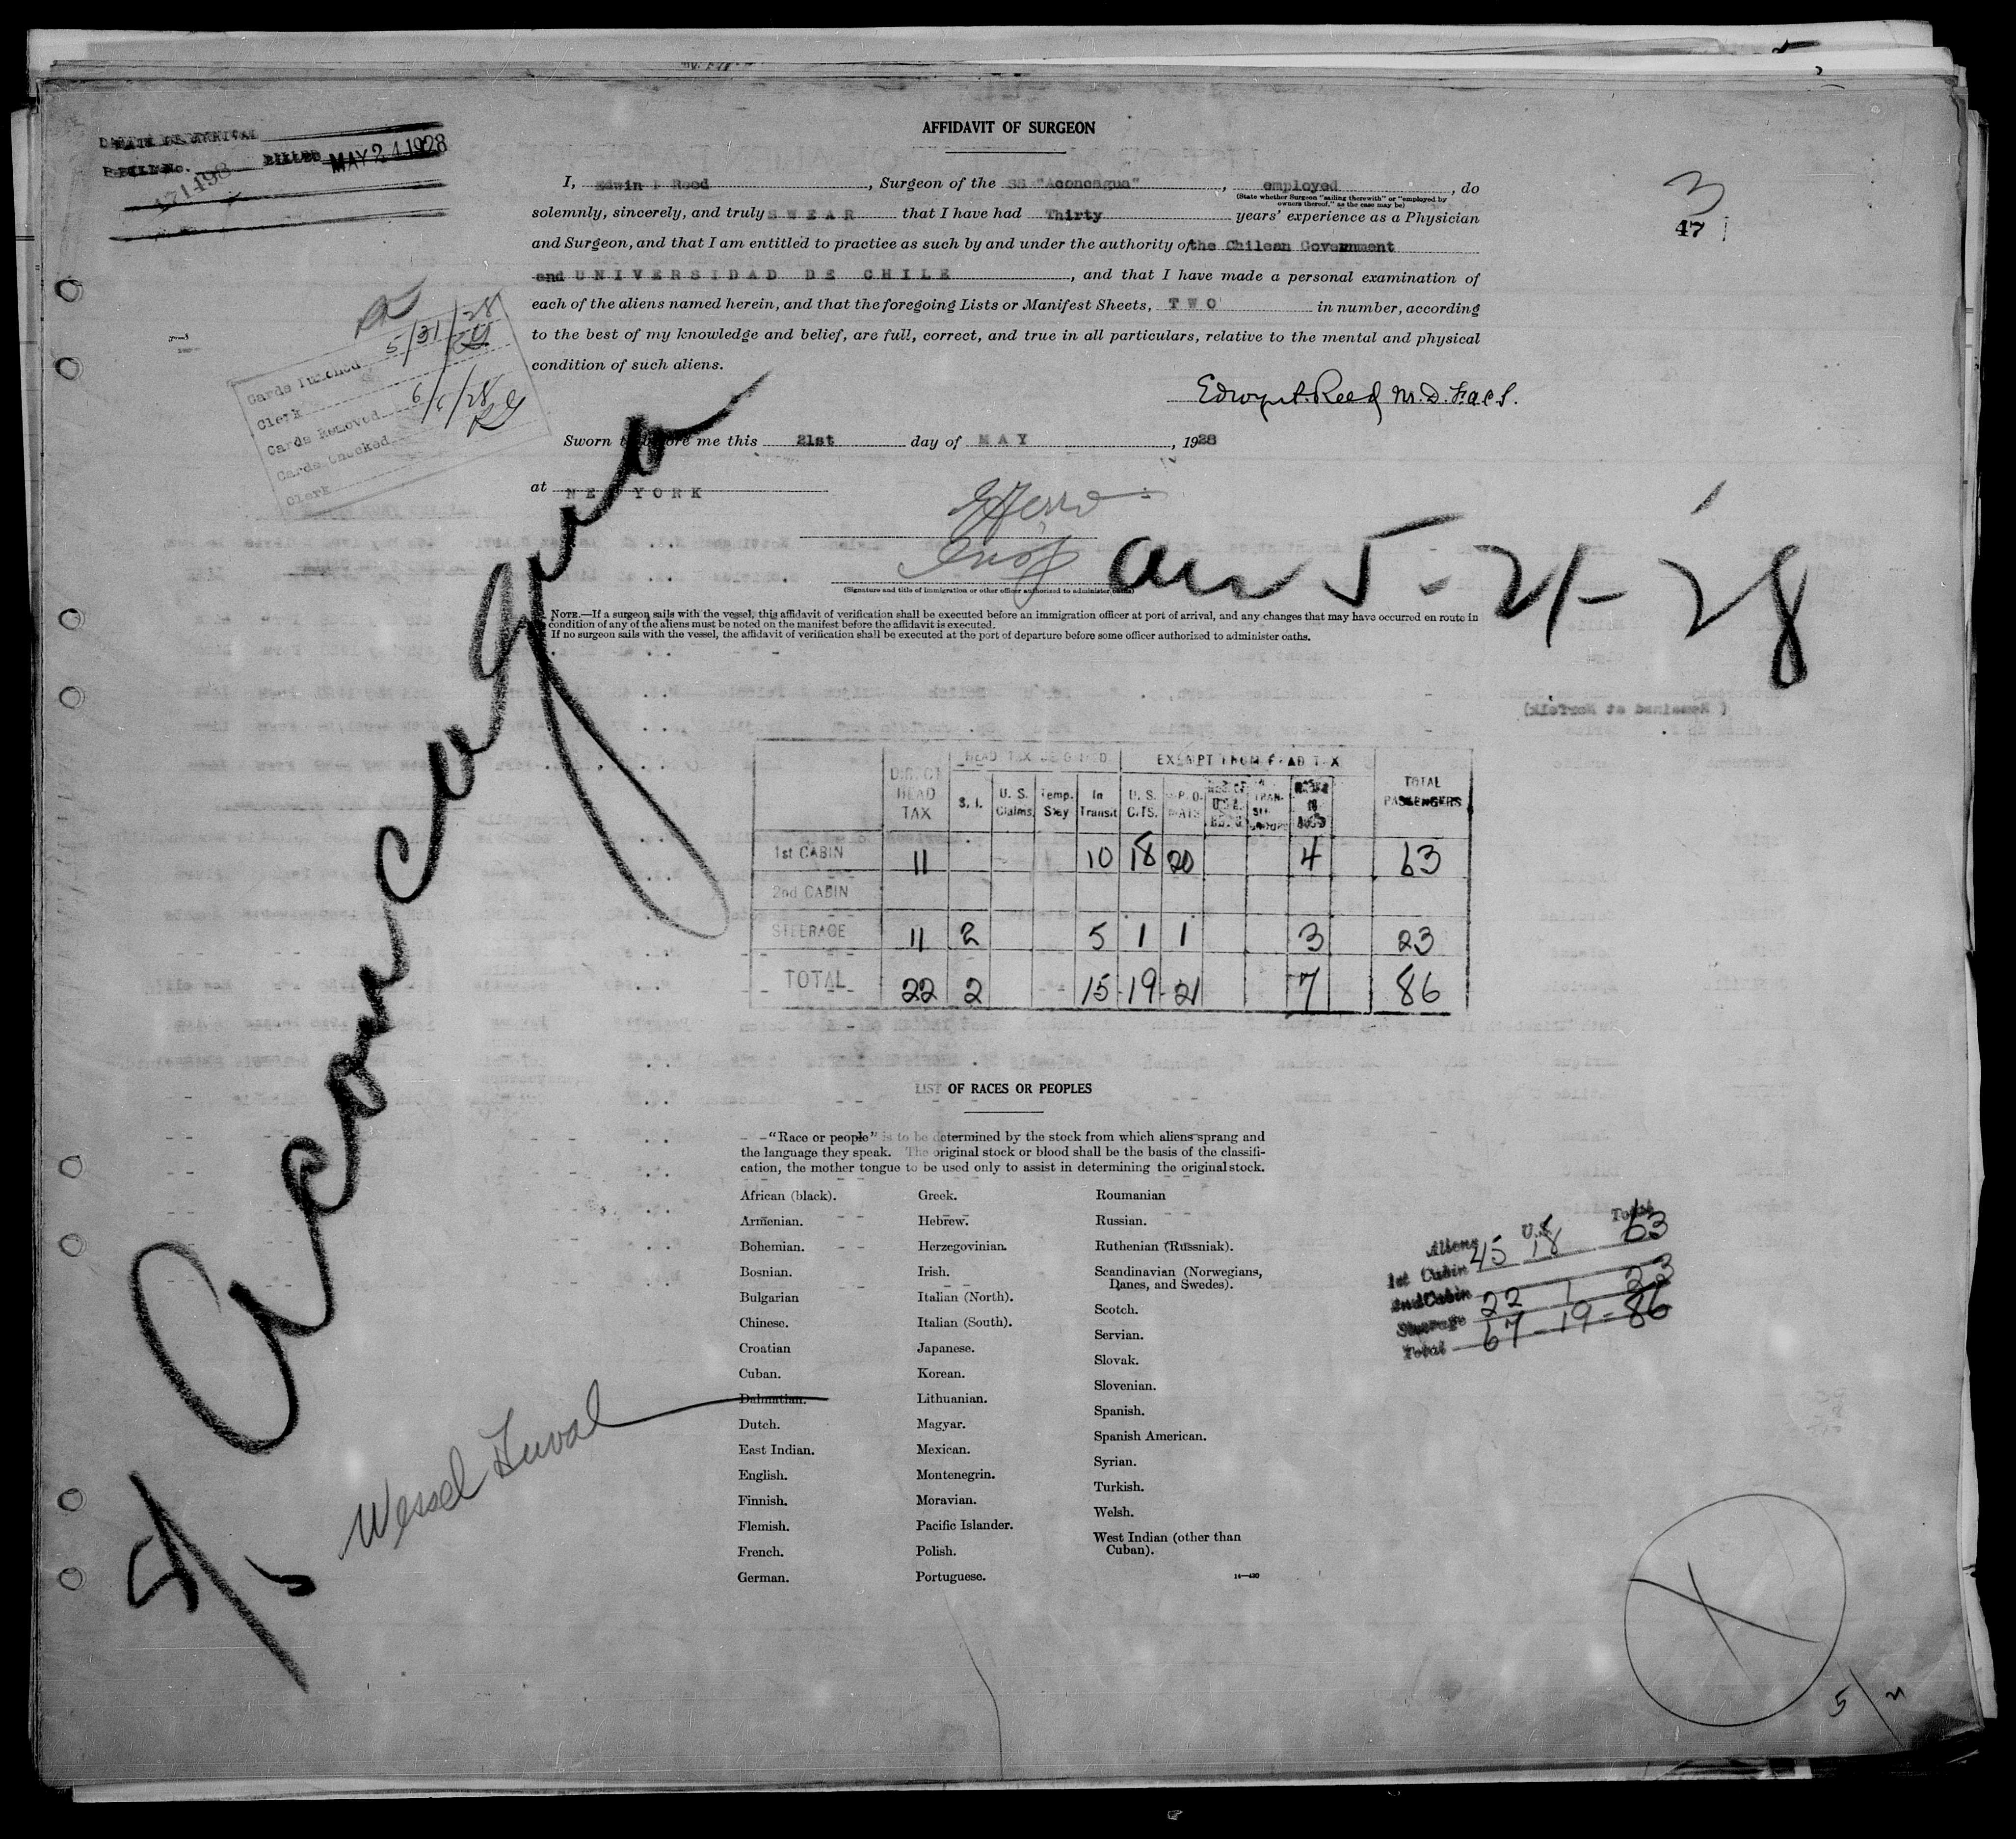 DATE OF ARRIVAL
BILL No. BILLED MAY 24 1928
171498
AFFIDAVIT OF SURGEON
I, Edwin Reed, Surgeon of the SS "Aconcagua", employed, do
(State whether Surgeon "sailing therewith" or "employed by
owners thereof," as the case may be)
solemnly, sincerely, and truly SWEAR that I have had Thirty years' experience as a Physician
and Surgeon, and that I am entitled to practice as such by and under the authority of the Chilean Government
and UNIVERSIDAD DE CHILE, and that I have made a personal examination of
each of the aliens named herein, and that the foregoing Lists or Manifest Sheets, TWO in number, according
to the best of my knowledge and belief, are full, correct, and true in all particulars, relative to the mental and physical
condition of such aliens.
3
47
Cards Punched 5/31/28
Clerk
Cards Removed 6/6/28
Cards Checked
Clerk
Edwyn Reed M.D. F.a.c.s.
Sworn to before me this 21st day of MAY, 1928
at NEW YORK
Insp
(Signature and title of immigration or other officer authorized to administer oaths)
Arr 5-21-28
NOTE.—If a surgeon sails with the vessel, this affidavit of verification shall be executed before an immigration officer at port of arrival, and any changes that may have occurred en route in
condition of any of the aliens must be noted on the manifest before the affidavit is executed.
If no surgeon sails with the vessel, the affidavit of verification shall be executed at the port of departure before some officer authorized to administer oaths.
Aconcagua
HEAD TAX EXEMPT FROM HEAD TAX
DIRECT HEAD TAX S. I. U. S. Claims Temp. Stay In Transit U. S. CITS. TOTAL PASSENGERS
1st CABIN 11 10 18 20 4 63
2nd CABIN
STEERAGE 11 2 5 1 1 3 23
TOTAL 22 2 15-19-21 7 86
LIST OF RACES OR PEOPLES
"Race or people" is to be determined by the stock from which aliens sprang and
the language they speak. The original stock or blood shall be the basis of the classifi-
cation, the mother tongue to be used only to assist in determining the original stock.
African (black).
Armenian.
Bohemian.
Bosnian.
Bulgarian
Chinese.
Croatian
Cuban.
Dalmatian.
Dutch.
East Indian.
English.
Finnish.
Flemish.
French.
German.
Greek.
Hebrew.
Herzegovinian.
Irish.
Italian (North).
Italian (South).
Japanese.
Korean.
Lithuanian.
Magyar.
Mexican.
Montenegrin.
Moravian.
Pacific Islander.
Polish.
Portuguese.
Roumanian
Russian.
Ruthenian (Russniak).
Scandinavian (Norwegians,
Danes, and Swedes).
Scotch.
Servian.
Slovak.
Slovenian.
Spanish.
Spanish American.
Syrian.
Turkish.
Welsh.
West Indian (other than
Cuban).
14—430
Aliens U.S. Total
1st Cabin 45 18 63
2nd Cabin
Steerage 22 1 23
Total 67-19-86
Wessel Duval
X
5/